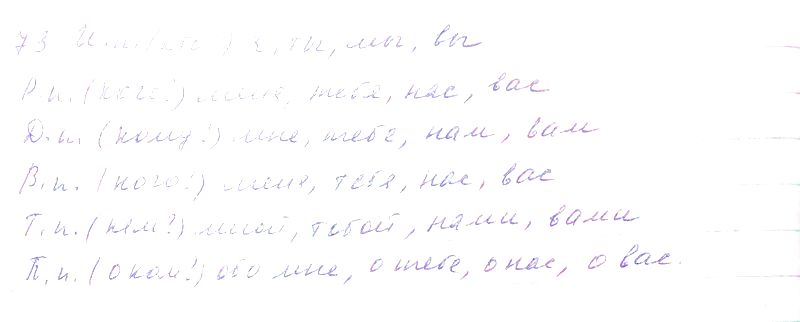 73 И.п. (кто?) я, ты, мы, вы
Р.п. (кого?) меня, тебя, нас, вас
Д.п. (кому?) мне, тебе, нам, вам
В.п. (кого?) меня, тебя, нас, вас
Т.п. (кем?) мной, тобой, нами, вами
П.п. (о ком?) обо мне, о тебе, о нас, о вас.